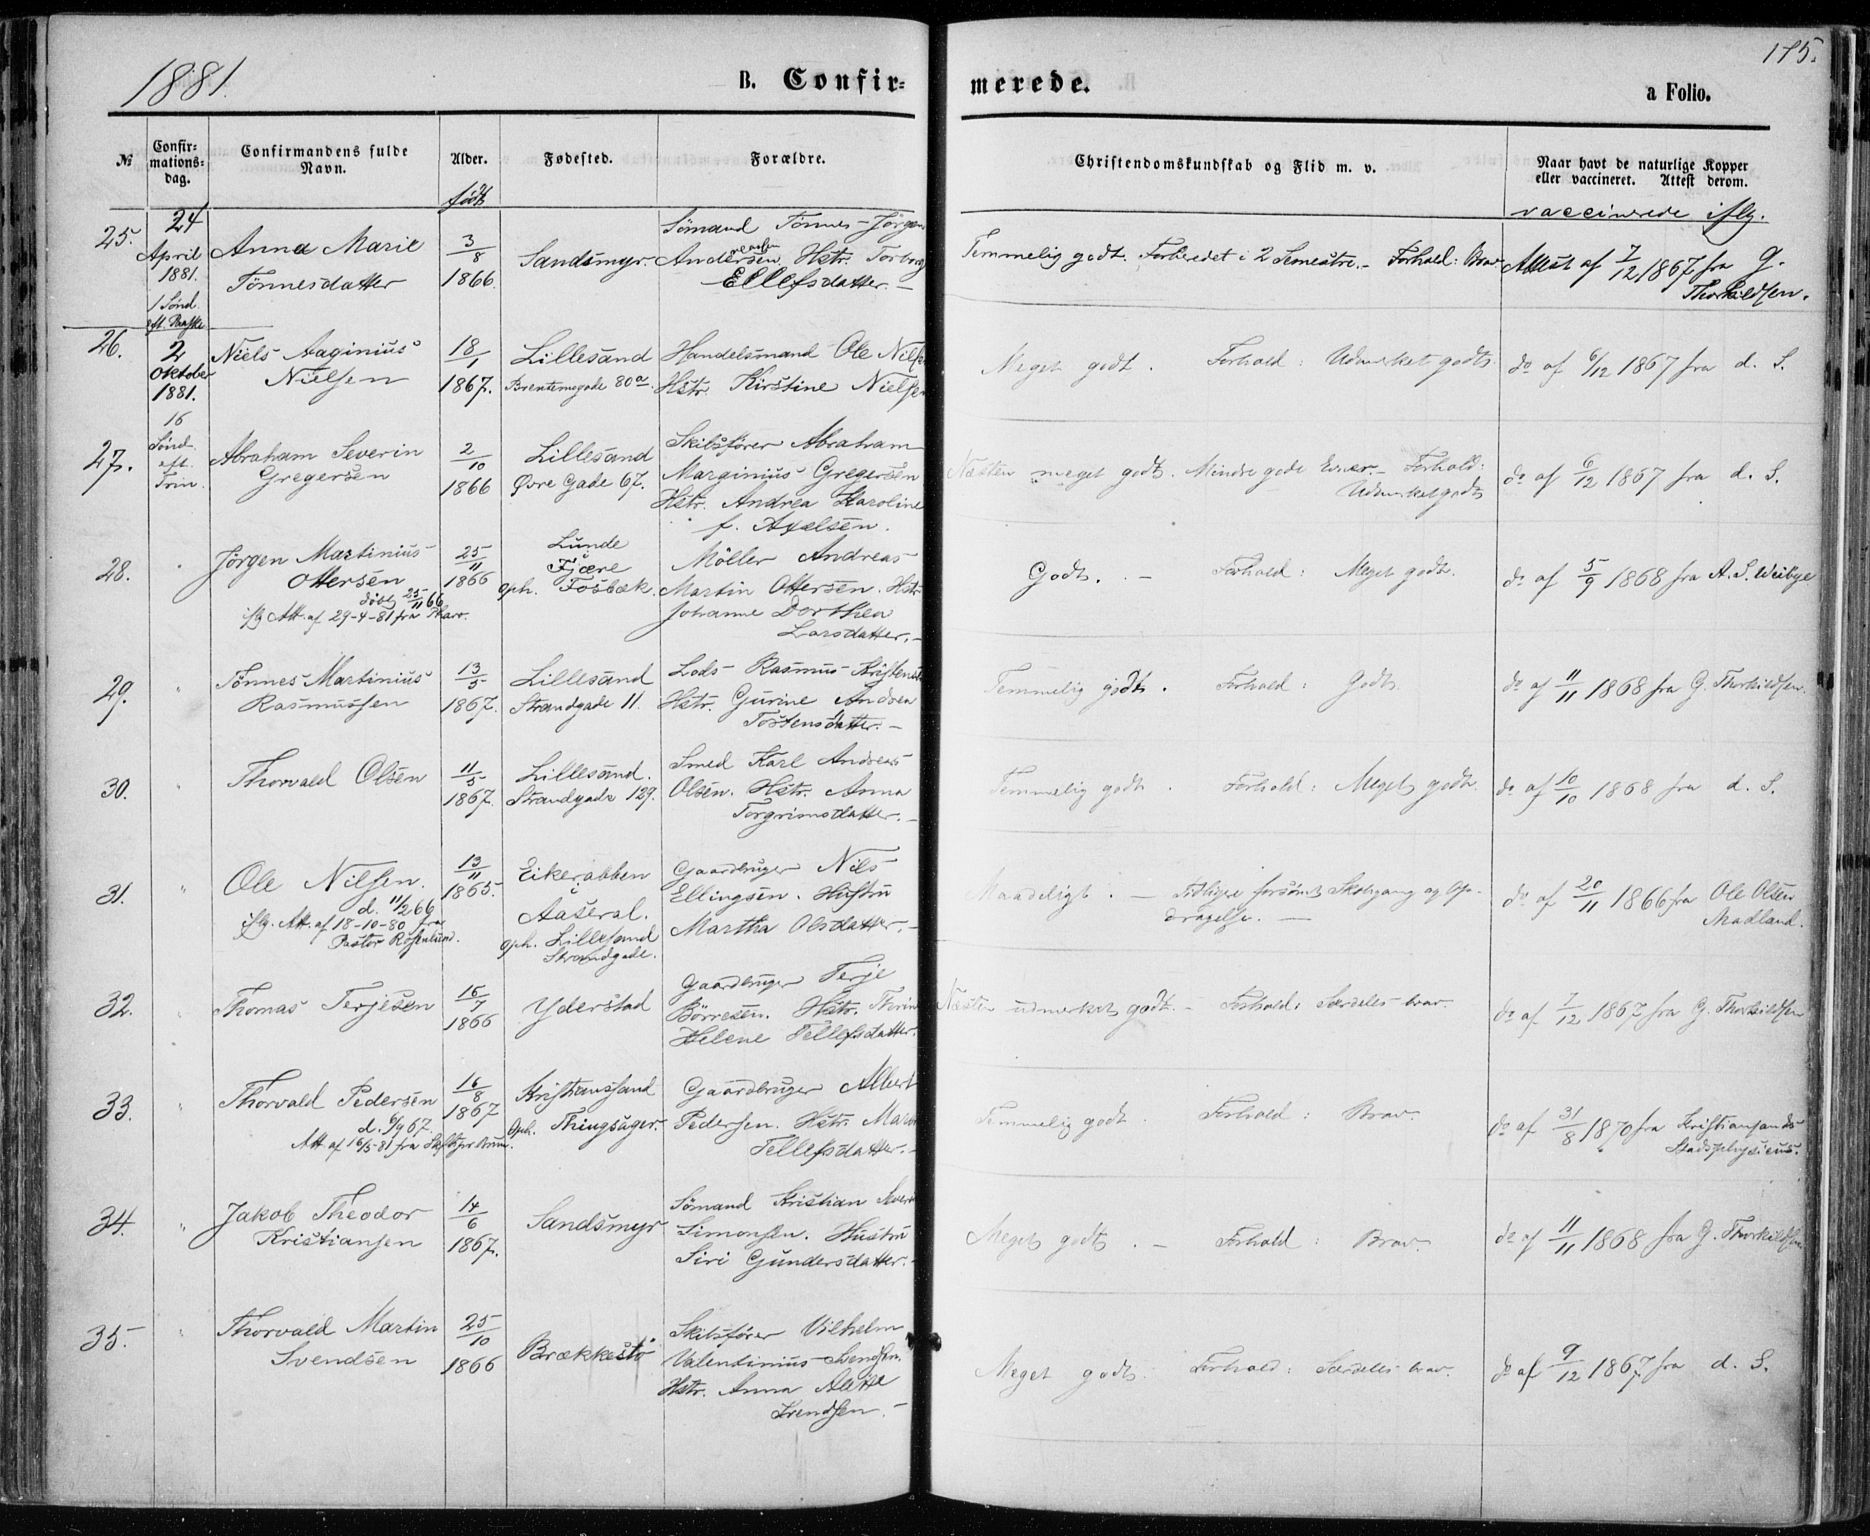 1881.
B. Confir=
merede.
175.
a Folio.
№
Confir-
mations-
dag.
Confirmandens fulde
Navn.
Alder.
Fødested.
Forældre.
Christendomskundskab og Flid m. v.
Naar havt de naturlige Kopper
eller vaccineret. Attest derom.
født
vaccinerede iflg.
25.
24
April
1881.
1 Sønd.
eft. Paaske
Anna Marie
Tönnesdatter
3/8
1866
Sandsmyr.
Sömand Tönnes Jörgen
Andersen. Hstr. Torborg
Ellefsdatter. –
Temmelig godt. Forberedet i 2 Semestre. – Forhold: Brav
Attest af 7/12 1867 fra G.
Thorkildsen.
26.
2
Oktober
1881.
16
Sønd.
eft.
Trin.
Niels Aaginius
Nielsen
18/1
1867.
Lillesand
Brentemsgade 80a.
Handelsmand Ole Nilsen
Hstr. Kirstine Nielsen
Meget godt. Forhold: Udmerket godt.
do af 6/12 1867 fra d. S.
27.
Abraham Severin
Gregersen
2/10
1866
Lillesand
Øvre Gade 67.
Skibsfører Abraham
Marginius Gregersen
Hstr. Andrea Karoline
f. Axelsen.
Næsten meget godt. Mindre gode Evner. – Forhold:
Udmerket godt
do af 6/12 1867 fra d. S.
28.
Jörgen Martinius
Ottersen
døbt 25/11 66
iflg Att. af 29-4-81 fra Pharr.
25/11
1866
Lunde
i
Fjære
oph. Fosbæk.
Möller Andreas
Martin Ottersen. Hstr
Johanne Dorthea
Larsdatter. –
Godt. – Forhold: Meget godt.
do af 5/9 1868 fra A. S. Weibye
29.
Tönnes Martinius
Rasmussen
13/5
1867.
Lillesand
Strandgade 11.
Lods Rasmus Kristensen
Hstr. Gurine Andrea
Tostensdatter. –
Temmelig godt. Forhold: Godt.
do af 11/11 1868 fra G. Thorkildsen.
30.
Thorvald Olsen
11/5
1867.
Lillesand.
Strandgade 129.
Smed Karl Andreas
Olsen. Hstr. Anna
Torgrimsdatter. –
Temmelig godt. Forhold: Meget godt.
do af 10/10 1868 fra d. S.
31.
Ole Nilsen.
d. 11/2 66
iflg. Att. af 18-10-80 fra
Pastor Rosenlund.
13/11
1865.
Eikerabben
i
Aaseral.
oph. Lillesand
Strandgade.
Gaardbruger Nils
Ellingsen. Hustru
Martha Olsdatter. –
Maadeligt. – Tidligere forsømt Skolegang og Op-
dragelse. –
do af 20/11 1866 fra Ole Olsen
Madland.
32.
Thomas Terjesen
16/7
1866
Yderstad
Gaardbruger Terje
Börresen. Hstr. Thorine
Helene Tellefsdatter.
Næsten udmerket godt. – Forhold: Særdeles brav.
do af 7/12 1867 fra G. Thorkildsen
33.
Thorvald Pedersen
d. 6/9 67.
Att af 16/5-81 fra
16/8
1867
Kristianssand
Oph. Thingsager.
Gaardbruger Albert
Pedersen. Hstr. Maren
Tellefsdatter. –
Temmelig godt. Forhold: Brav.
do af 31/8 1870 fra Kristiansands
Stadsphysicus.
34.
Jakob Theodor
Kristiansen
14/6
1867.
Sandsmyr
Sömand Kristian
Simonsen. Hustru
Siri Gundersdatter. –
Meget godt. – Forhold: Brav.
do af 11/11 1868 fra G. Thorkildsen.
35.
Thorvald Martin
Svendsen
25/10
1866
Brækkestö
Skibsfører Vilhelm
Valentinius Svendsen.
Hstr. Anna Alette
Svendsen. –
Meget godt. Forhold: Særdeles brav.
do af 9/12 1867 fra d. S.